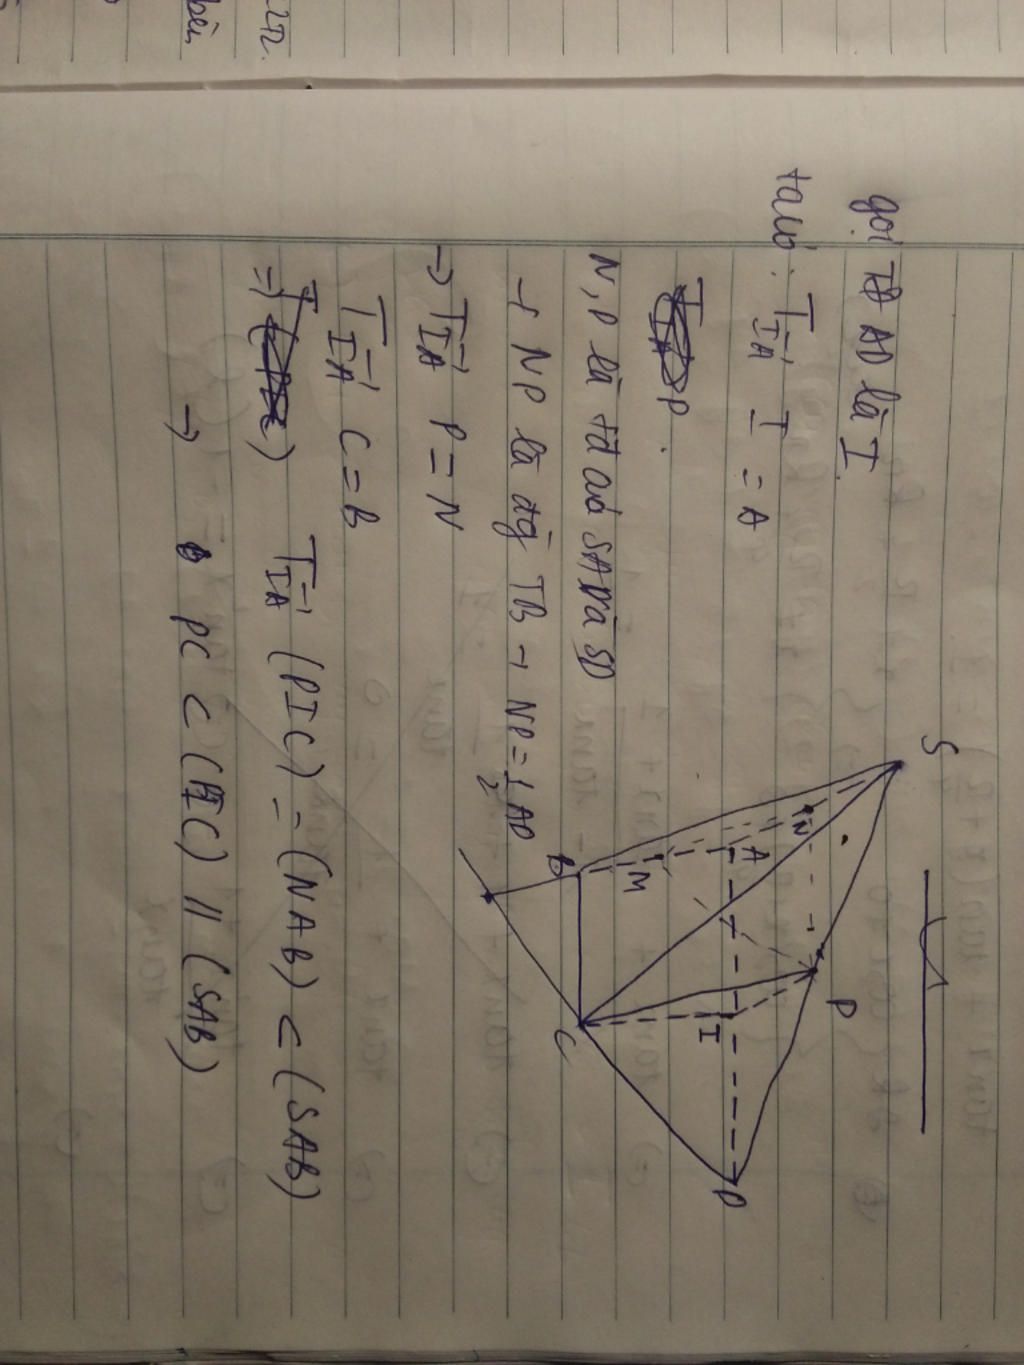 gọi TĐ AD là I
ta có : T⃗IA I = A
P.
N, P là tđ của SA và SD
→ NP là đg TB → NP = 1/2 AD
→ T⃗IA P = N
T⃗IA C = B
=> T⃗IA (PIC) = (NAB) ⊂ (SAB)
→ PC ⊂ (PIC) // (SAB)
S
N
A
M
B
P
I
C
D